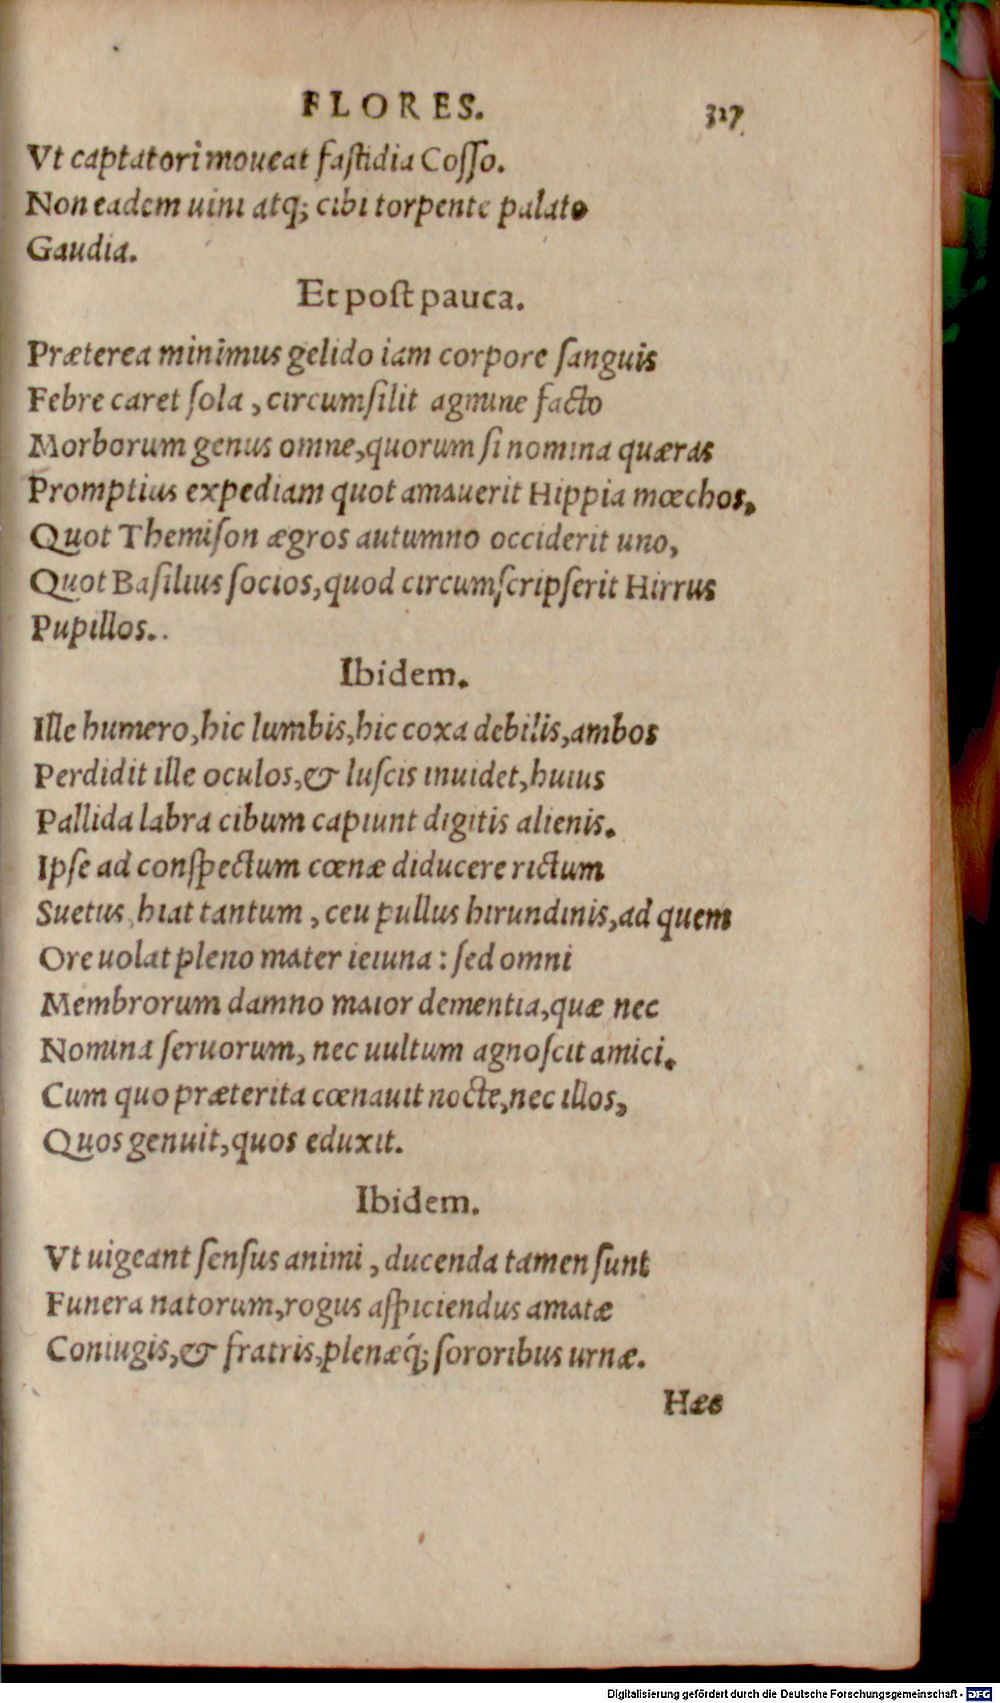 FLORES. 327
Vt captatori moueat fastidia Cosso.
Non eadem uini atq; cibi torpente palato
Gaudia.
Et post pauca.
Præterea minimus gelido iam corpore sanguis
Febre caret sola, circumsilit agmine facto
Morborum genus omne, quorum si nomina quæras
Promptius expediam quot amauerit Hippia mœchos,
Quot Themison ægros autumno occiderit uno,
Quot Basilius socios, quod circumscripserit Hirrus
Pupillos..
Ibidem.
Ille humero, hic lumbis, hic coxa debilis, ambos
Perdidit ille oculos, & luscis inuidet, huius
Pallida labra cibum capiunt digitis alienis.
Ipse ad conspectum cœnæ diducere rictum
Suetus, hiat tantum, ceu pullus hirundinis, ad quem
Ore uolat pleno mater ieiuna: sed omni
Membrorum damno maior dementia, quæ nec
Nomina seruorum, nec uultum agnoscit amici.
Cum quo præterita cœnauit nocte, nec illos,
Quos genuit, quos eduxit.
Ibidem.
Vt uigeant sensus animi, ducenda tamen sunt
Funera natorum, rogus aspiciendus amatæ
Coniugis, & fratris, plenæq́; sororibus urnæ.
Hæc
Digitalisierung gefördert durch die Deutsche Forschungsgemeinschaft - DFG